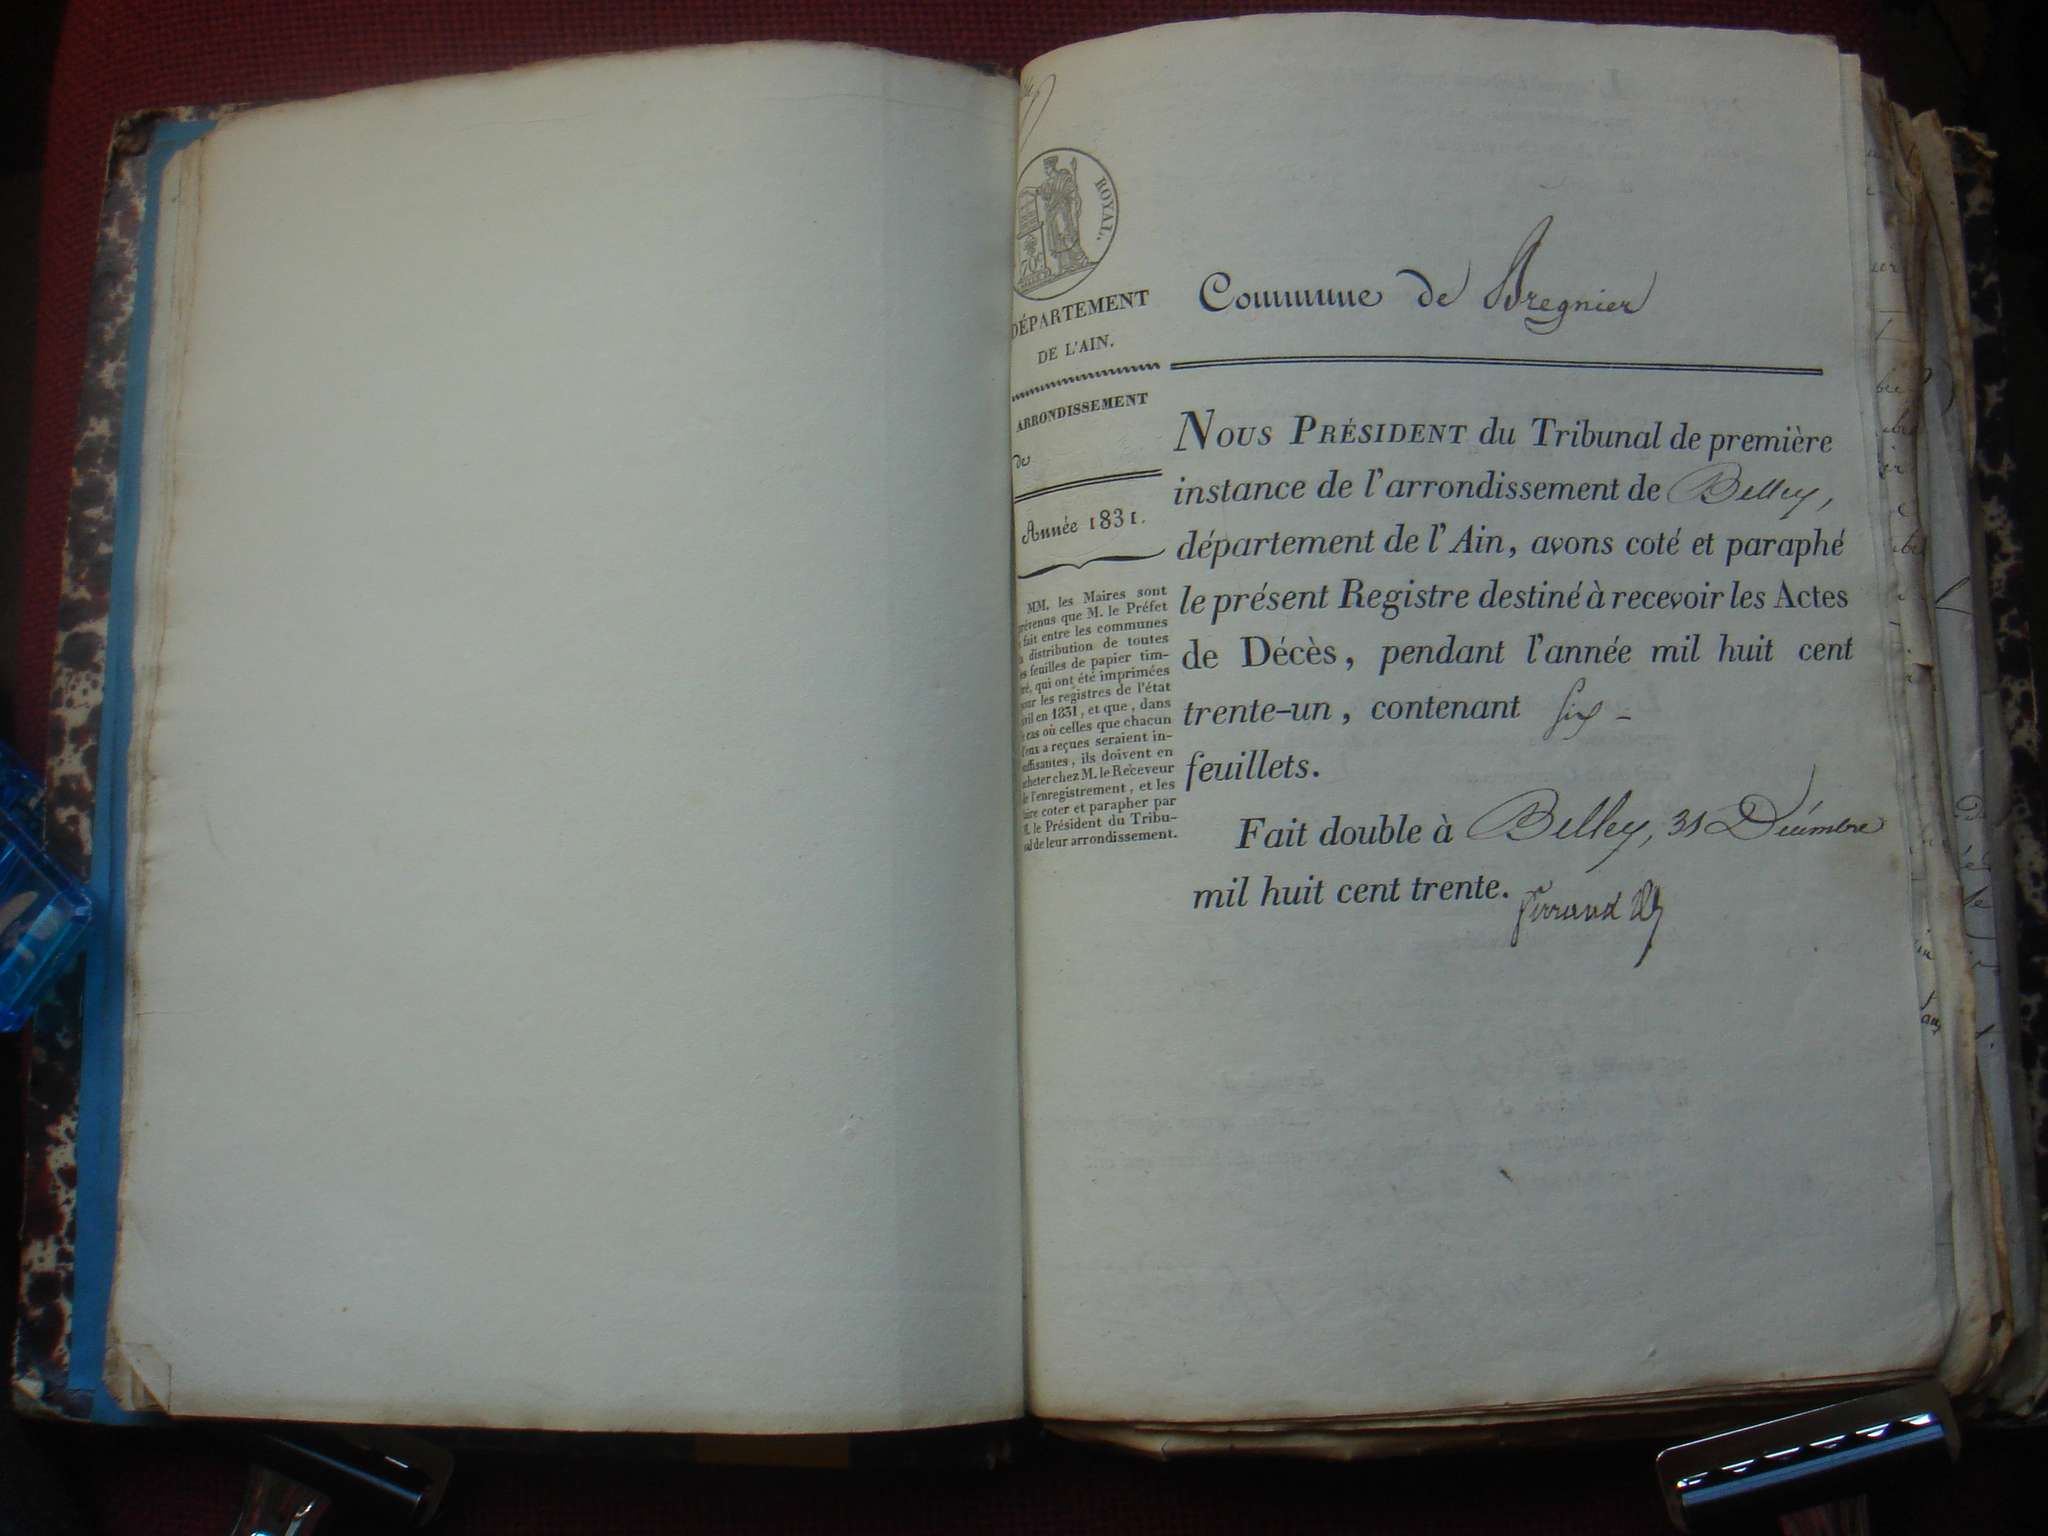 ROYAL.
70c
DÉPARTEMENT
DE L'AIN.
ARRONDISSEMENT
de
Année 1831.
MM. les Maires sont
prévenus que M. le Préfet
a fait entre les communes
la distribution de toutes
les feuilles de papier tim-
bré, qui ont été imprimées
pour les registres de l'état
civil en 1831, et que, dans
le cas où celles que chacun
d'eux a reçues seraient in-
suffisantes, ils doivent en
acheter chez M. le Receveur
de l'enregistrement, et les
faire coter et parapher par
M. le Président du Tribu-
nal de leur arrondissement.
Commune de Bregnier
NOUS PRÉSIDENT du Tribunal de première
instance de l'arrondissement de Belley,
département de l'Ain, avons coté et paraphé
le présent Registre destiné à recevoir les Actes
de Décès, pendant l'année mil huit cent
trente-un, contenant six -
feuillets.
Fait double à Belley, 31 Décembre
mil huit cent trente.